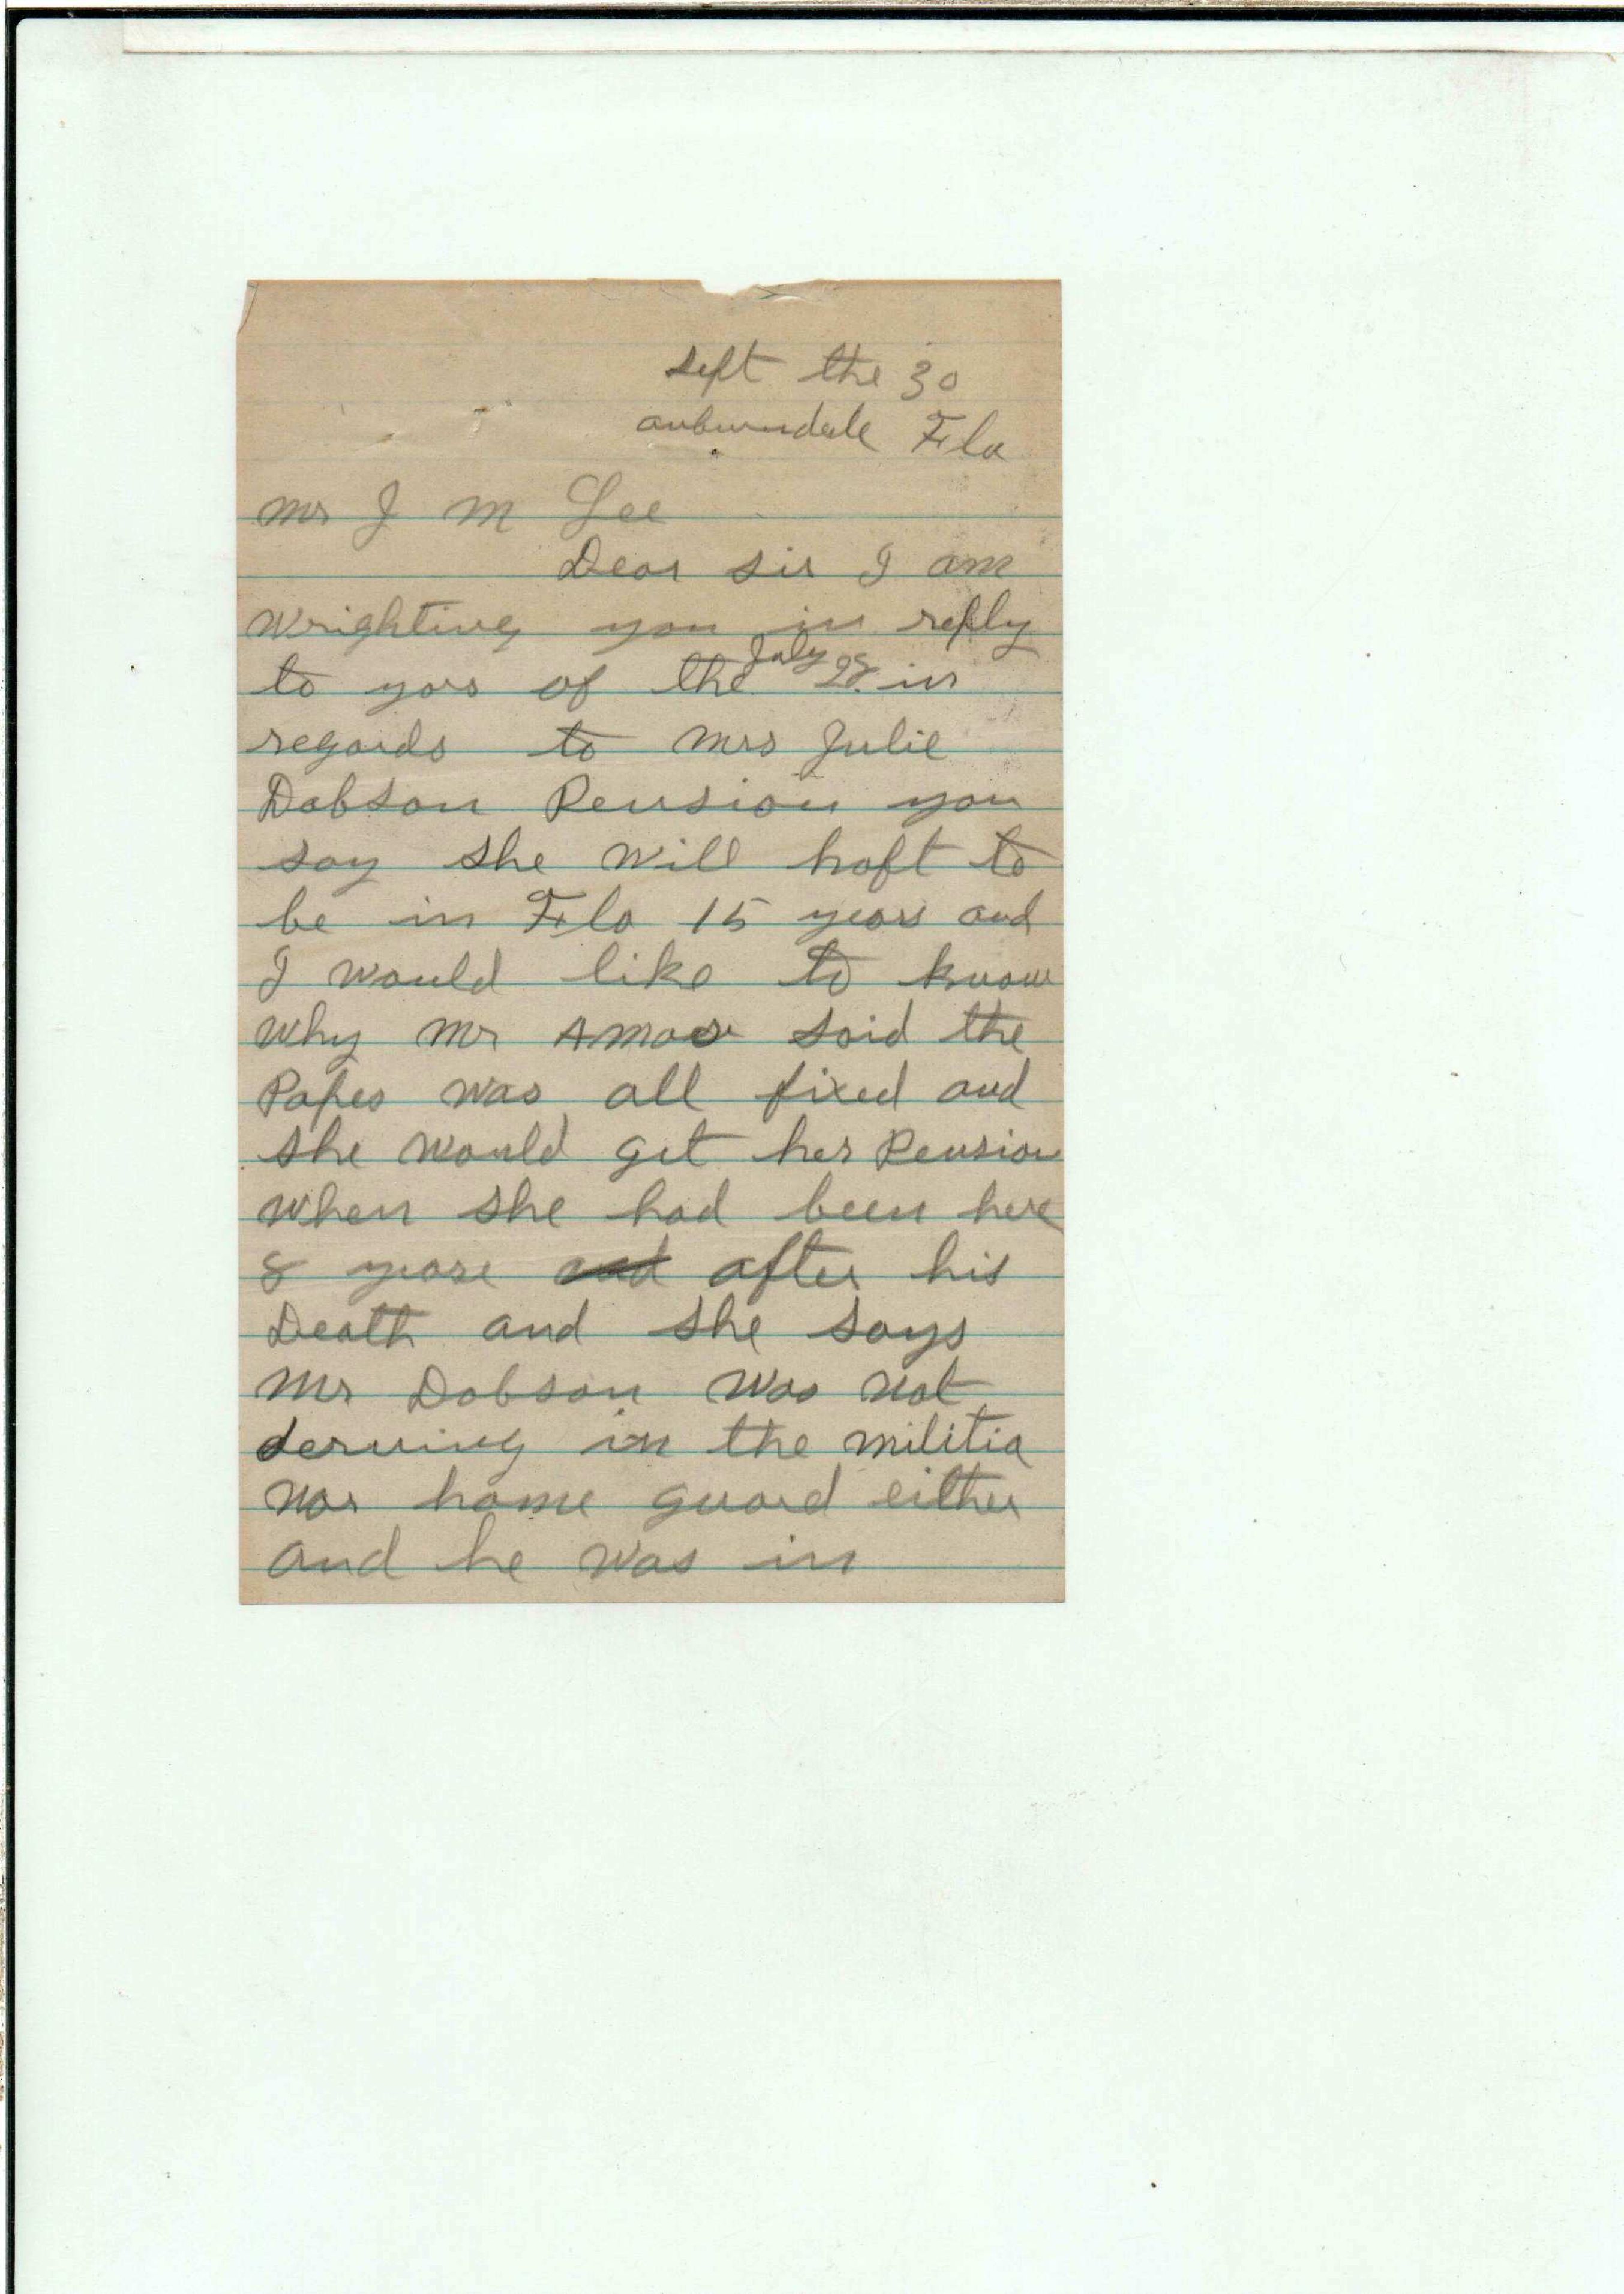 sept the 30
auburndale Fla
mr J M Lee
Dear sir I am
wrighting you in reply
to yors of the July 28. in
regards to mrs Julie
Dobson Pension you
say she will haft to
be in Fla 15 years and
I would like to know
why mr Amos said the
Papes was all fixed and
she would get her Pension
when she had been here
8 years after his
Death and she says
mr Dobson was not
serving in the militia
nor home guard either
and he was in